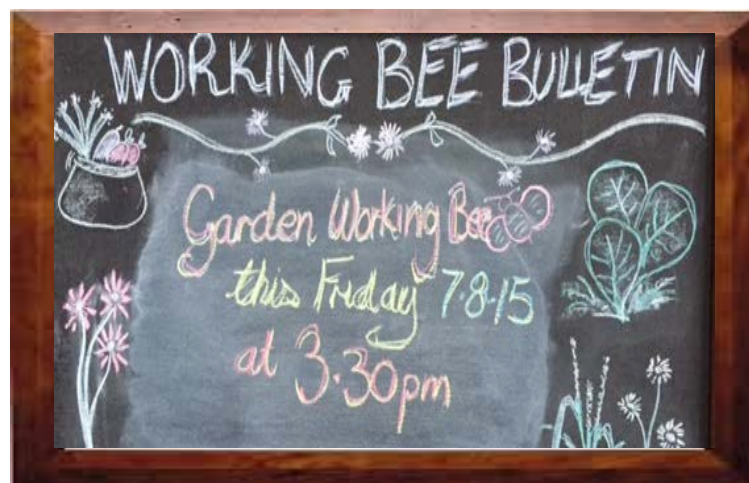 WORKING BEE BULLETIN
Garden Working Bee
this Friday 7.8.15
at 3.30pm